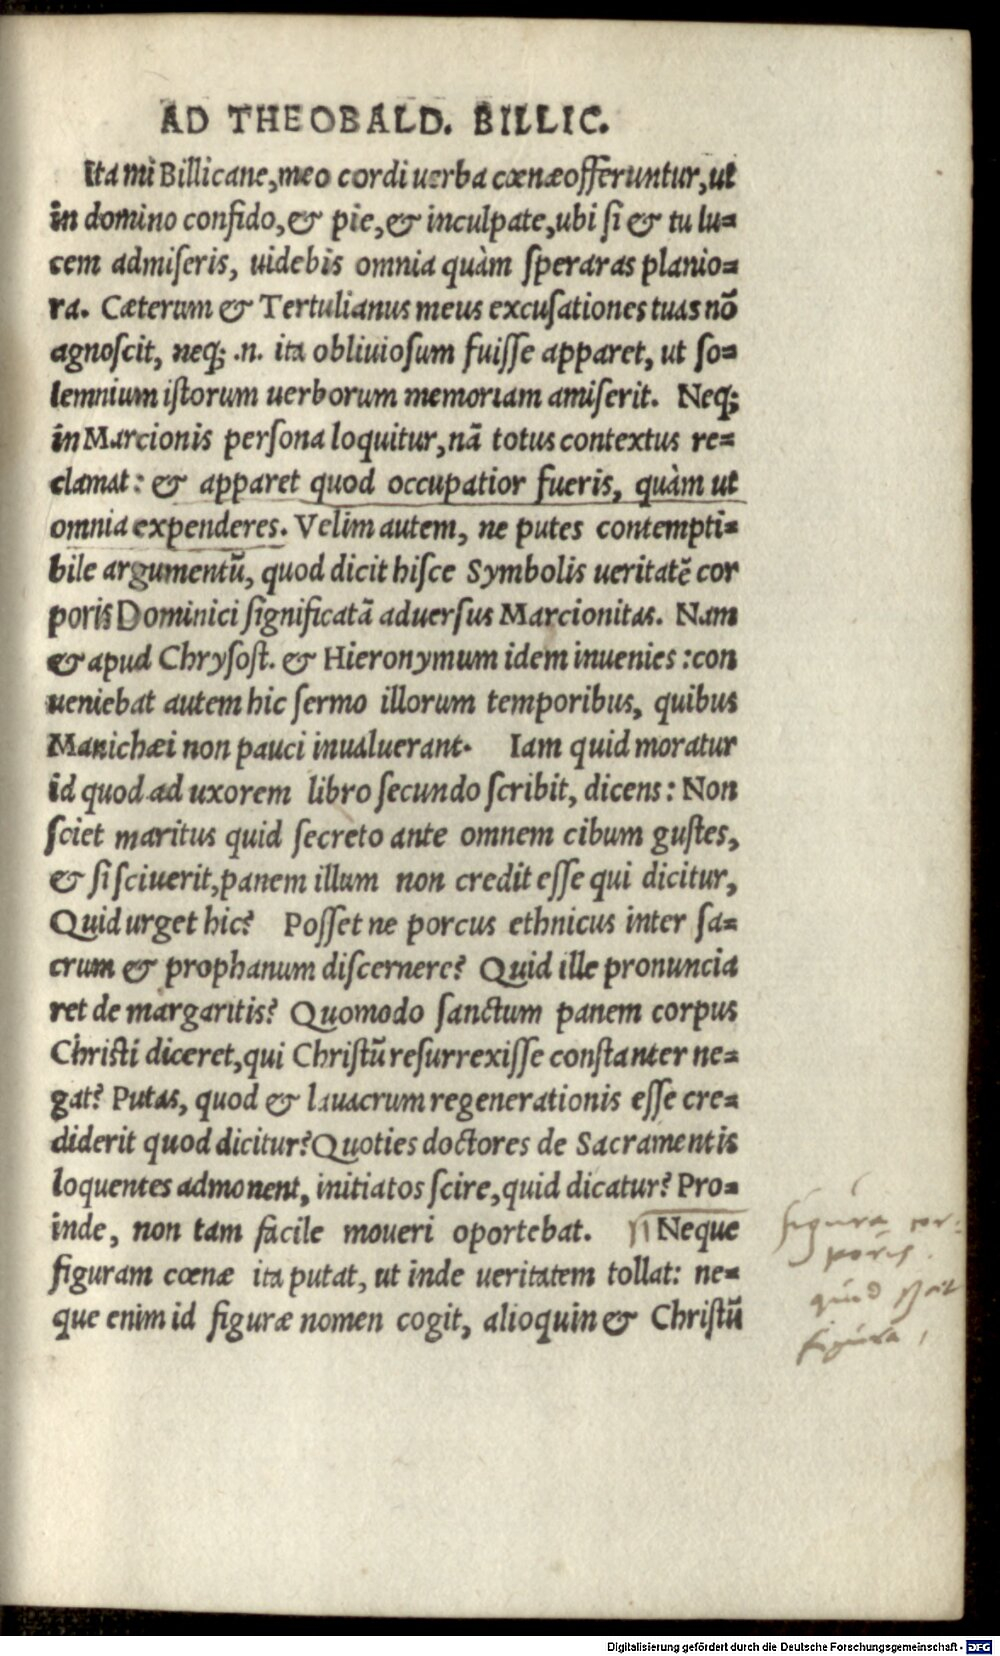 AD THEOBALD. BILLIC.
Ita mi Billicane, meo cordi uerba cœnæ offeruntur, ut
in domino confido, & pie, & inculpate, ubi ſi & tu lu=
cem admiſeris, uidebis omnia quàm ſperaras planio=
ra. Cæterum & Tertulianus meus excuſationes tuas nō
agnoſcit, neq; .n. ita obliuioſum fuiſſe apparet, ut ſo=
lemnium iſtorum uerborum memoriam amiſerit. Neq;
in Marcionis perſona loquitur, nā totus contextus re=
clamat: & apparet quod occupatior fueris, quàm ut
omnia expenderes. Velim autem, ne putes contempti=
bile argumentū, quod dicit hiſce Symbolis ueritatē cor
poris Dominici ſignificatā aduerſus Marcionitas. Nam
& apud Chryſoſt. & Hieronymum idem inuenies: con
ueniebat autem hic ſermo illorum temporibus, quibus
Manichæi non pauci inualuerant. Iam quid moratur
id quod ad uxorem libro ſecundo ſcribit, dicens: Non
ſciet maritus quid ſecreto ante omnem cibum guſtes,
& ſi ſciuerit, panem illum non credit eſſe qui dicitur,
Quid urget hic? Poſſet ne porcus ethnicus inter ſa=
crum & prophanum diſcernere? Quid ille pronuncia
ret de margaritis? Quomodo ſanctum panem corpus
Chriſti diceret, qui Chriſtū reſurrexiſſe conſtanter ne=
gat? Putas, quod & lauacrum regenerationis eſſe cre=
diderit quod dicitur? Quoties doctores de Sacramentis
loquentes admonent, initiatos ſcire, quid dicatur? Pro=
inde, non tam facile moueri oportebat. Neque
figuram cœnæ ita putat, ut inde ueritatem tollat: ne=
que enim id figuræ nomen cogit, alioquin & Chriſtū
figura cor:
poris.
quid
figura,
Digitalisierung gefördert durch die Deutsche Forschungsgemeinschaft - DFG